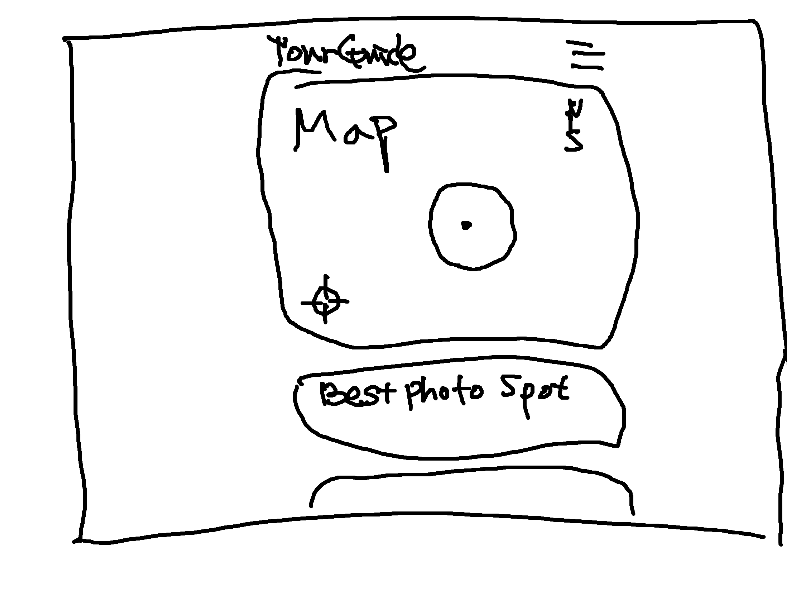 TourGuide
Map
N
S
Best Photo Spot